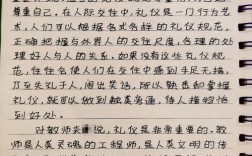 尊重自己，在人际交往中，礼仪是一门行为艺
术，人们可以根据各式各样的礼仪规范，
正确把握与外界人的交往尺度，合理的处
理好人与人的关系，如果没有这些礼仪规
范，往往会使人们在交往中感到手足无措，
乃至失礼于人，闹出笑话，所以熟悉和掌握
礼仪，就可以做到触类旁通，待人接物恰
到好处。
对教师来说，礼仪是非常重要的，教
师是人类灵魂的工程师，是人类文明的传